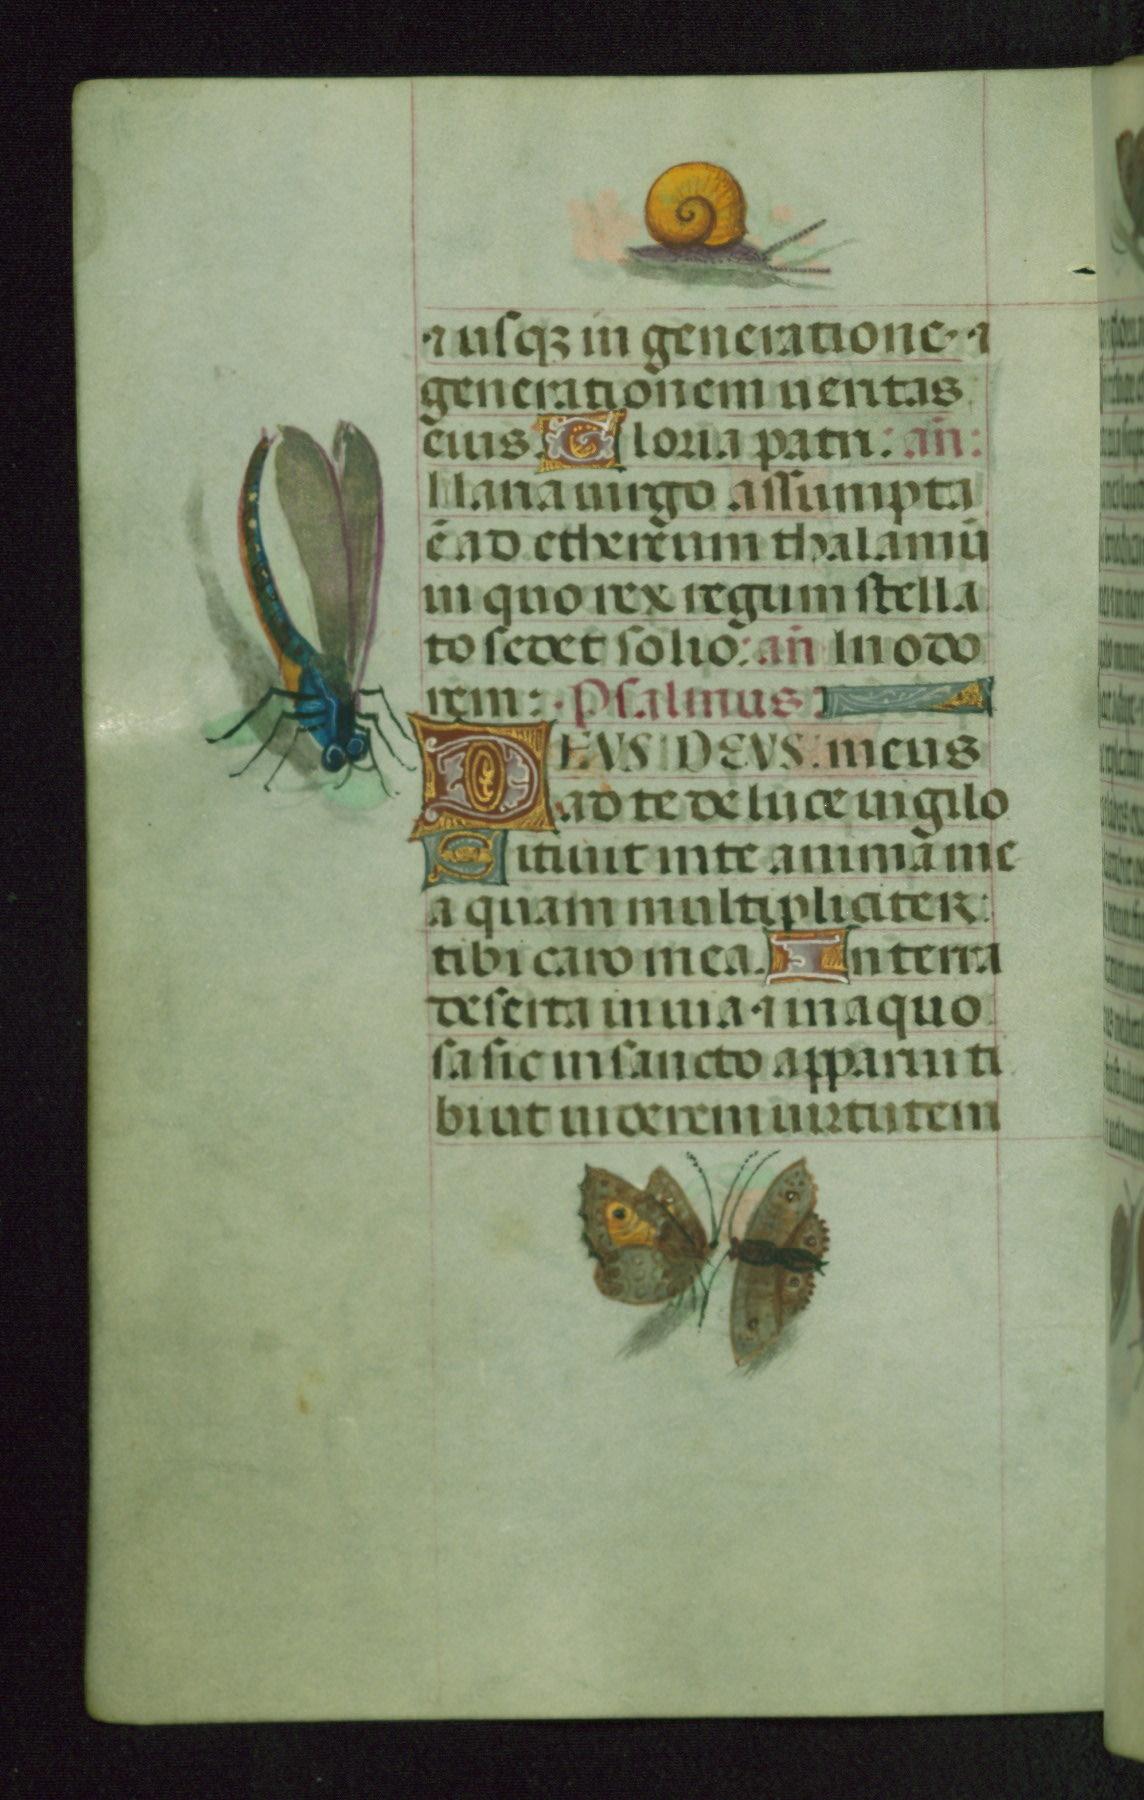 ⁊ usqꝫ in generatione· ⁊
generationem ueritas
eius. Gloria patri: an̄:
Maria uirgo assumpta
ē ad ethereum thalamū
in quo rex regum stella
to sedet solio: an̄ In odo
rem: Psalmus:
DEVS DEVS meus
ad te de luce uigilo
Sitiuit in te anima me
a quam multipliciter
tibi caro mea. In terra
deserta inuia ⁊ inaquo
sa sic in sancto apparui ti
bi ut uiderem uirtutem